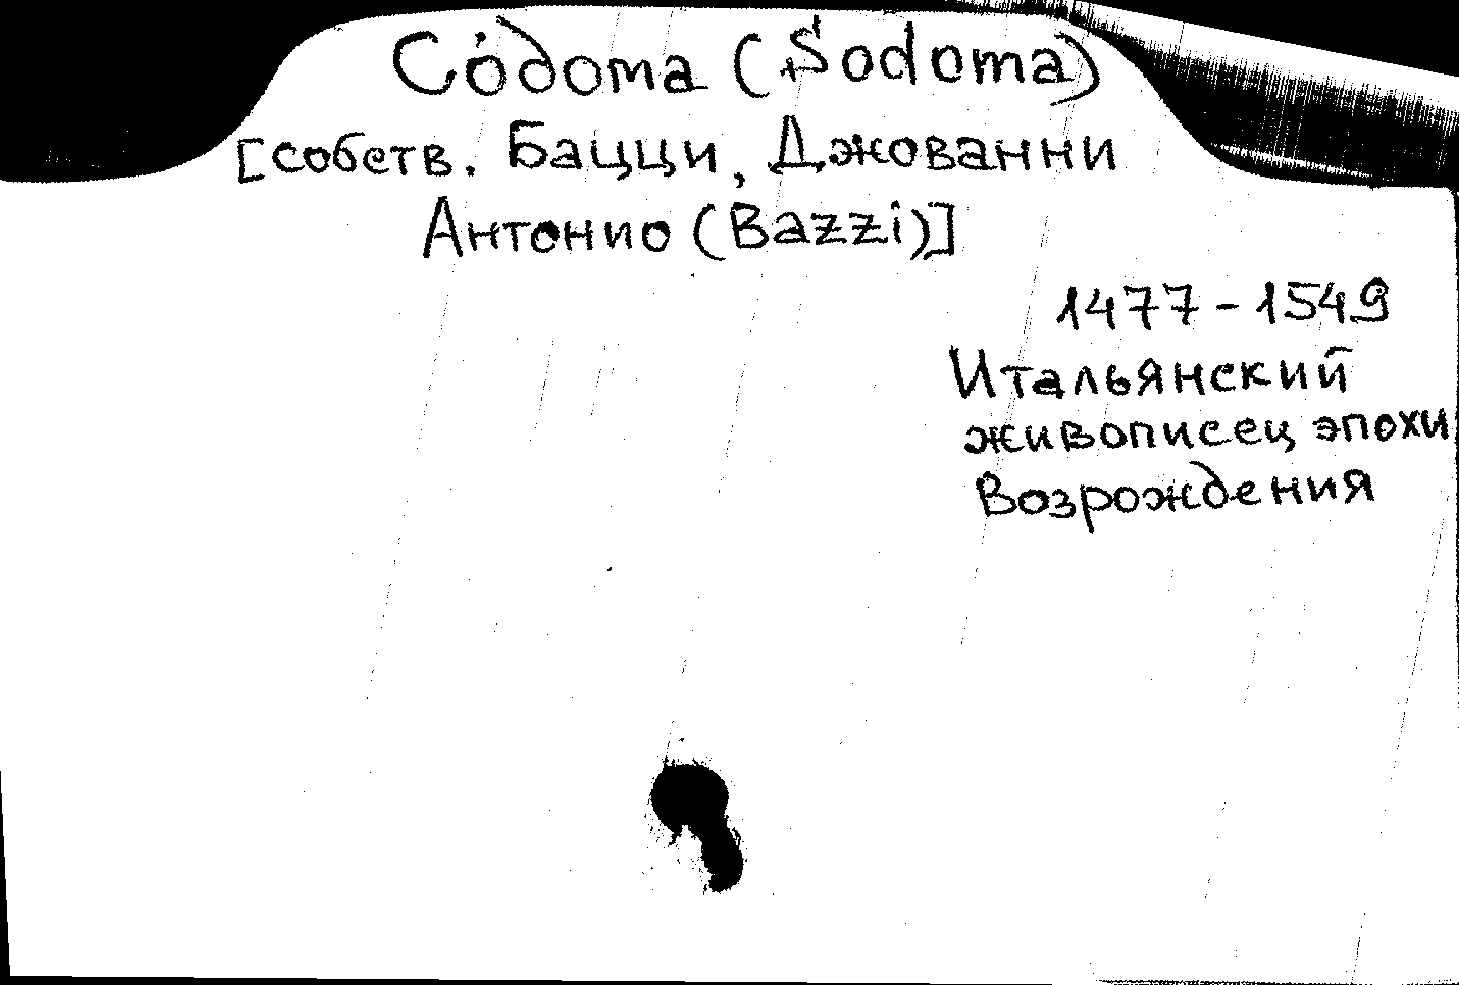 Со́дома (Sodoma)
[собств. Бацци, Джованни
Антонио (Bazzi)]
1477-1549
Итальянский
живописец эпохи
Возрождения